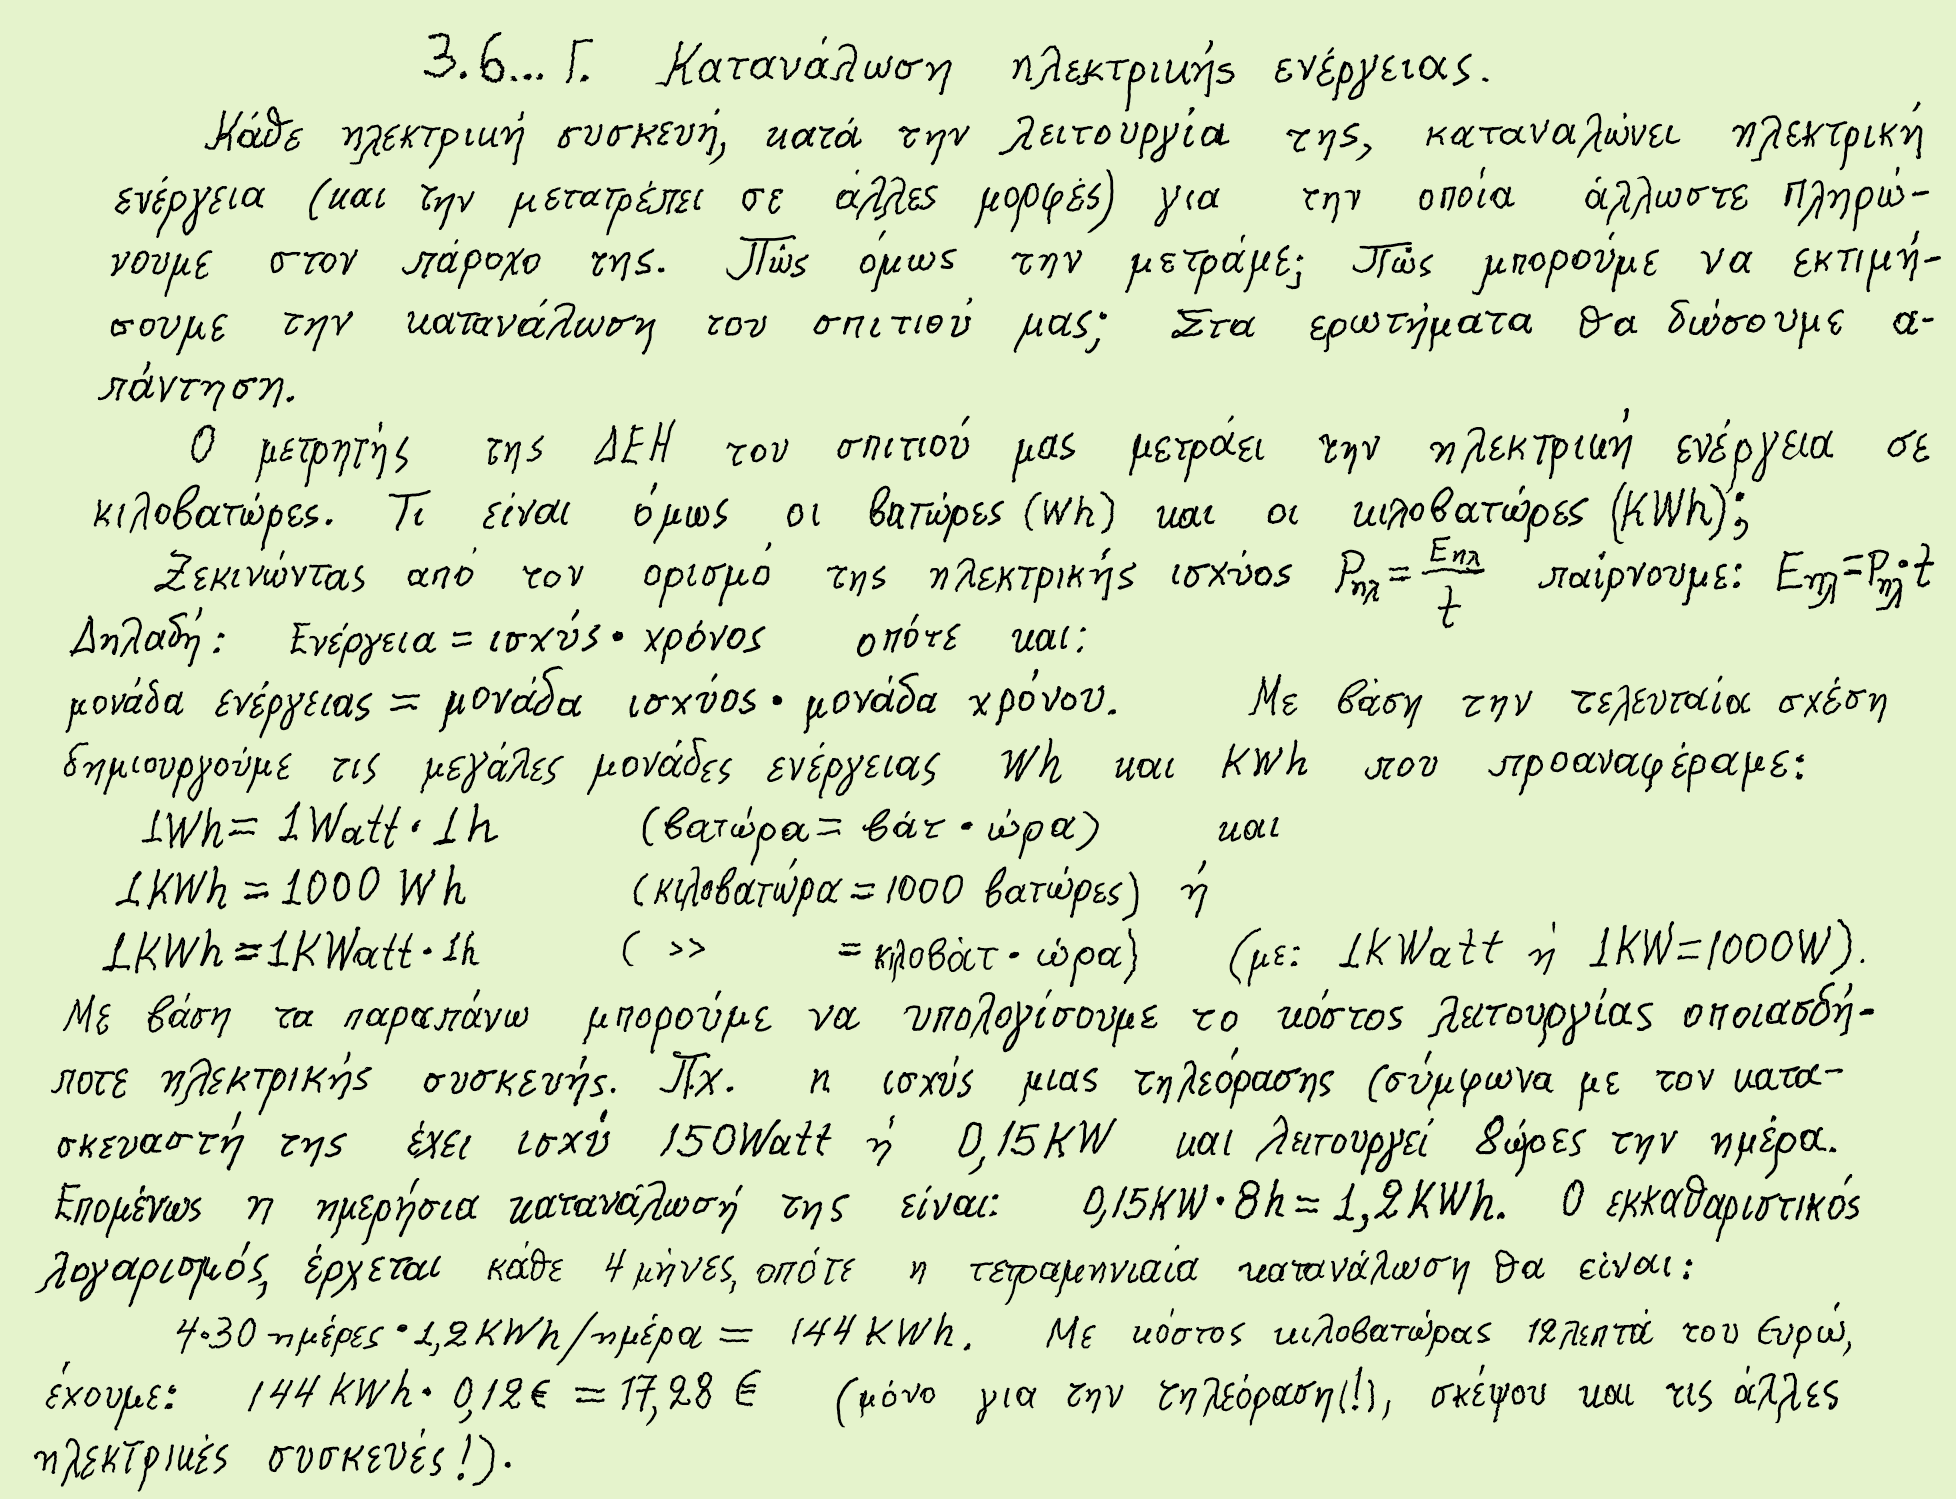 3.6... Γ. Κατανάλωση ηλεκτρικής ενέργειας.
Κάθε ηλεκτρική συσκευή, κατά την λειτουργία της, καταναλώνει ηλεκτρική
ενέργεια (και την μετατρέπει σε άλλες μορφές) για την οποία άλλωστε πληρώ-
νουμε στον πάροχο της. Πώς όμως την μετράμε; Πώς μπορούμε να εκτιμή-
σουμε την κατανάλωση του σπιτιού μας; Στα ερωτήματα θα δώσουμε α-
πάντηση.
Ο μετρητής της ΔΕΗ του σπιτιού μας μετράει την ηλεκτρική ενέργεια σε
κιλοβατώρες. Τι είναι όμως οι βατώρες (Wh) και οι κιλοβατώρες (KWh);
Ξεκινώντας από τον ορισμό της ηλεκτρικής ισχύος Pηλ = Eηλ/t παίρνουμε: Eηλ=Pηλ·t
Δηλαδή: Ενέργεια = ισχύς · χρόνος οπότε και:
μονάδα ενέργειας = μονάδα ισχύος · μονάδα χρόνου. Με βάση την τελευταία σχέση
δημιουργούμε τις μεγάλες μονάδες ενέργειας Wh και KWh που προαναφέραμε:
1Wh = 1Watt · 1h (βατώρα = βάτ · ώρα) και
1KWh = 1000 Wh (κιλοβατώρα = 1000 βατώρες) ή
1KWh = 1KWatt · 1h ( >> = κιλοβάτ · ώρα) (με: 1KWatt ή 1KW=1000W).
Με βάση τα παραπάνω μπορούμε να υπολογίσουμε το κόστος λειτουργίας οποιασδή-
ποτε ηλεκτρικής συσκευής. Π.χ. η ισχύς μιας τηλεόρασης (σύμφωνα με τον κατα-
σκευαστή της έχει ισχύ 150Watt ή 0,15KW και λειτουργεί 8ώρες την ημέρα.
Επομένως η ημερήσια κατανάλωσή της είναι: 0,15KW · 8h = 1,2KWh. Ο εκκαθαριστικός
λογαρισμός, έρχεται κάθε 4 μήνες, οπότε η τετραμηνιαία κατανάλωση θα είναι:
4·30 ημέρες · 1,2KWh/ημέρα = 144 KWh. Με κόστος κιλοβατώρας 12λεπτά του Ευρώ,
έχουμε: 144 KWh · 0,12€ = 17,28 € (μόνο για την τηλεόραση(!), σκέψου και τις άλλες
ηλεκτρικές συσκευές!).